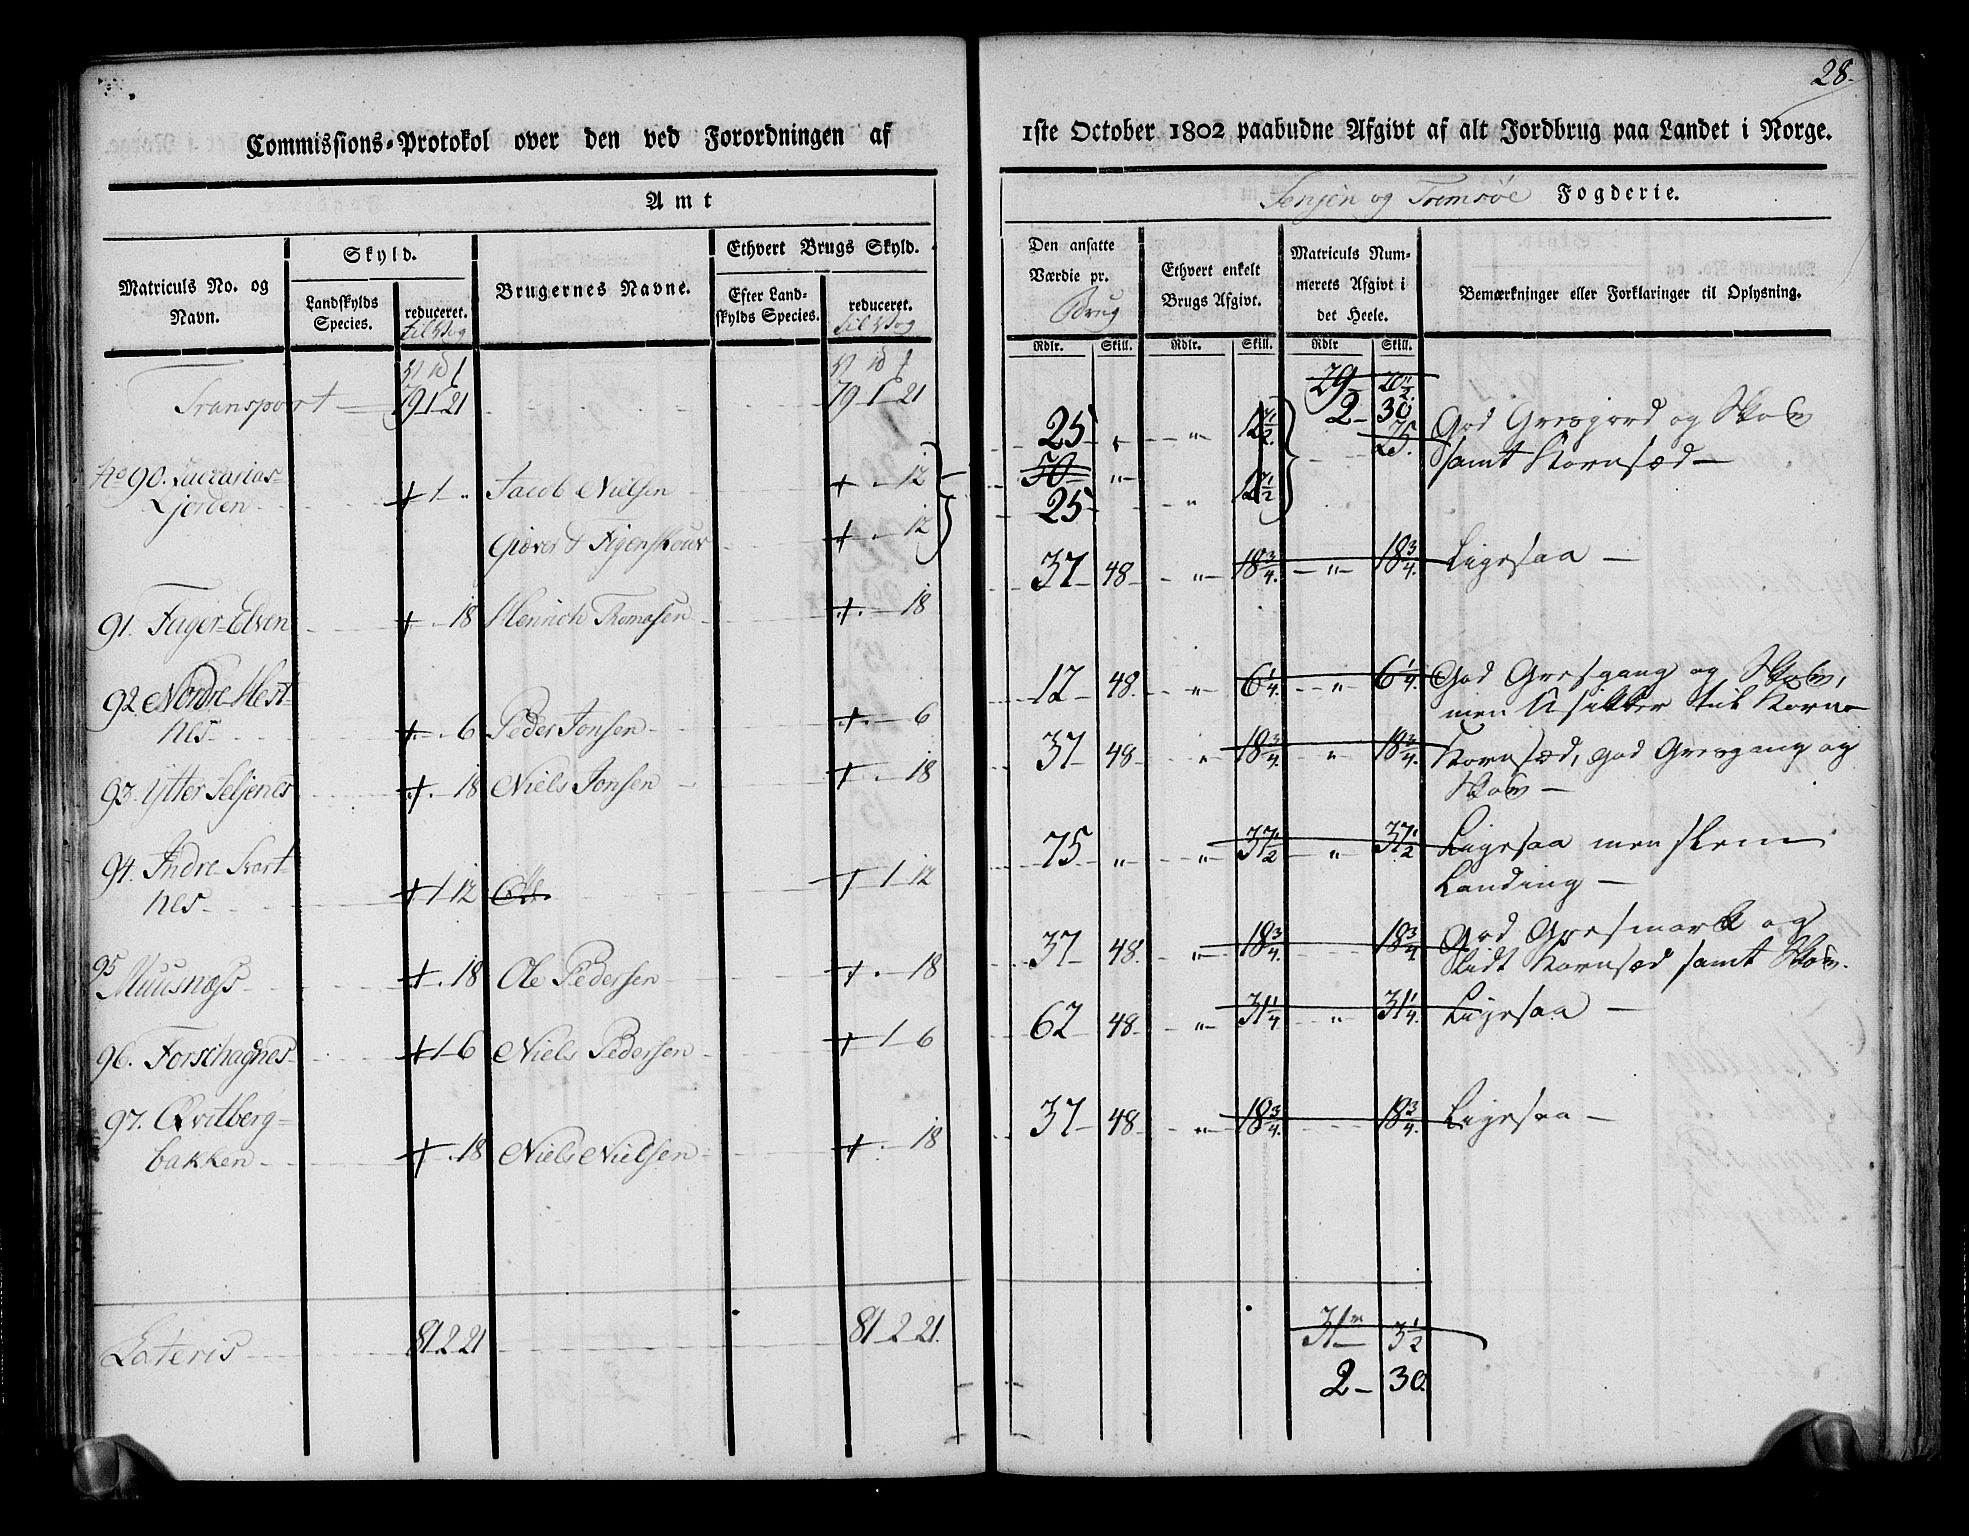 28.
Commissions-Protokol over den ved Forordningen af
1ste October 1802 paabudne Afgivt af alt Jordbrug paa Landet i Norge.
Amt
Senjen og Tromsøe Fogderie.
Matriculs No. og Navn.
Skyld.
Landskylds Species.
reduceret.
til Vog
Brugernes Navne.
Ethvert Brugs Skyld.
Efter Landskylds Species.
reduceret.
til Vog
Den ansatte Værdie pr. Brug
Ethvert enkelt Brugs Afgivt.
Matriculs Nummerets Afgivt i det Heele.
Bemærkninger eller Forklaringer til Oplysning.
Rdlr. Skill. Rdlr. Skill. Rdlr Skill.
Transport 79 1 21 79 1 21 29 20 1/2
2 - 30
25 " " 12 1/2 25. God Gresgord og Skov
No 90. - 50 " samt Kornsæd
Ljorden + 1 " Jacob Nielsen + . 12 25 " 12 1/2
Giæver & Figenskour + . 12
91. Fager-Elven + . 18 Henrich Thomasen + . 18 37 48 " 18 3/4 " 18 3/4 Ligesaa
92. Nordre Hest-
nes + . 6 Peder Jonsen + . 6 12 48 " 6 1/4 " 6 1/4 God Gresgang og Skov,
men Usikker til Korn
93. Ytter Seljenes + . 18 Niels Jonsen + . 18 37 48 " 18 3/4 " 18 3/4 Kornsæd, god Gresgang og
Skov
94. Indre Svart-
nes + 1 12 + 1 12 75 " " 37 1/2 " 37 1/2 Ligesaa men slem
Landing
95 Muusnæss + . 18 Ole Pedersen + . 18 37 48 " 18 3/4 18 3/4 God Gresmark og
lidt Kornsæd samt Skov.
96. Forschagnes + 1 6 Niels Pedersen + 1 6 62 48 " 31 1/4 " 31 1/4 Ligesaa
97. Qvitberg-
bakken + . 18 Niels Nielsen + . 18 37 48 " 18 3/4 18 3/4 Ligesaa
Lateris 81 2 21 81 2 21. 31 3 1/2
2 - 30.